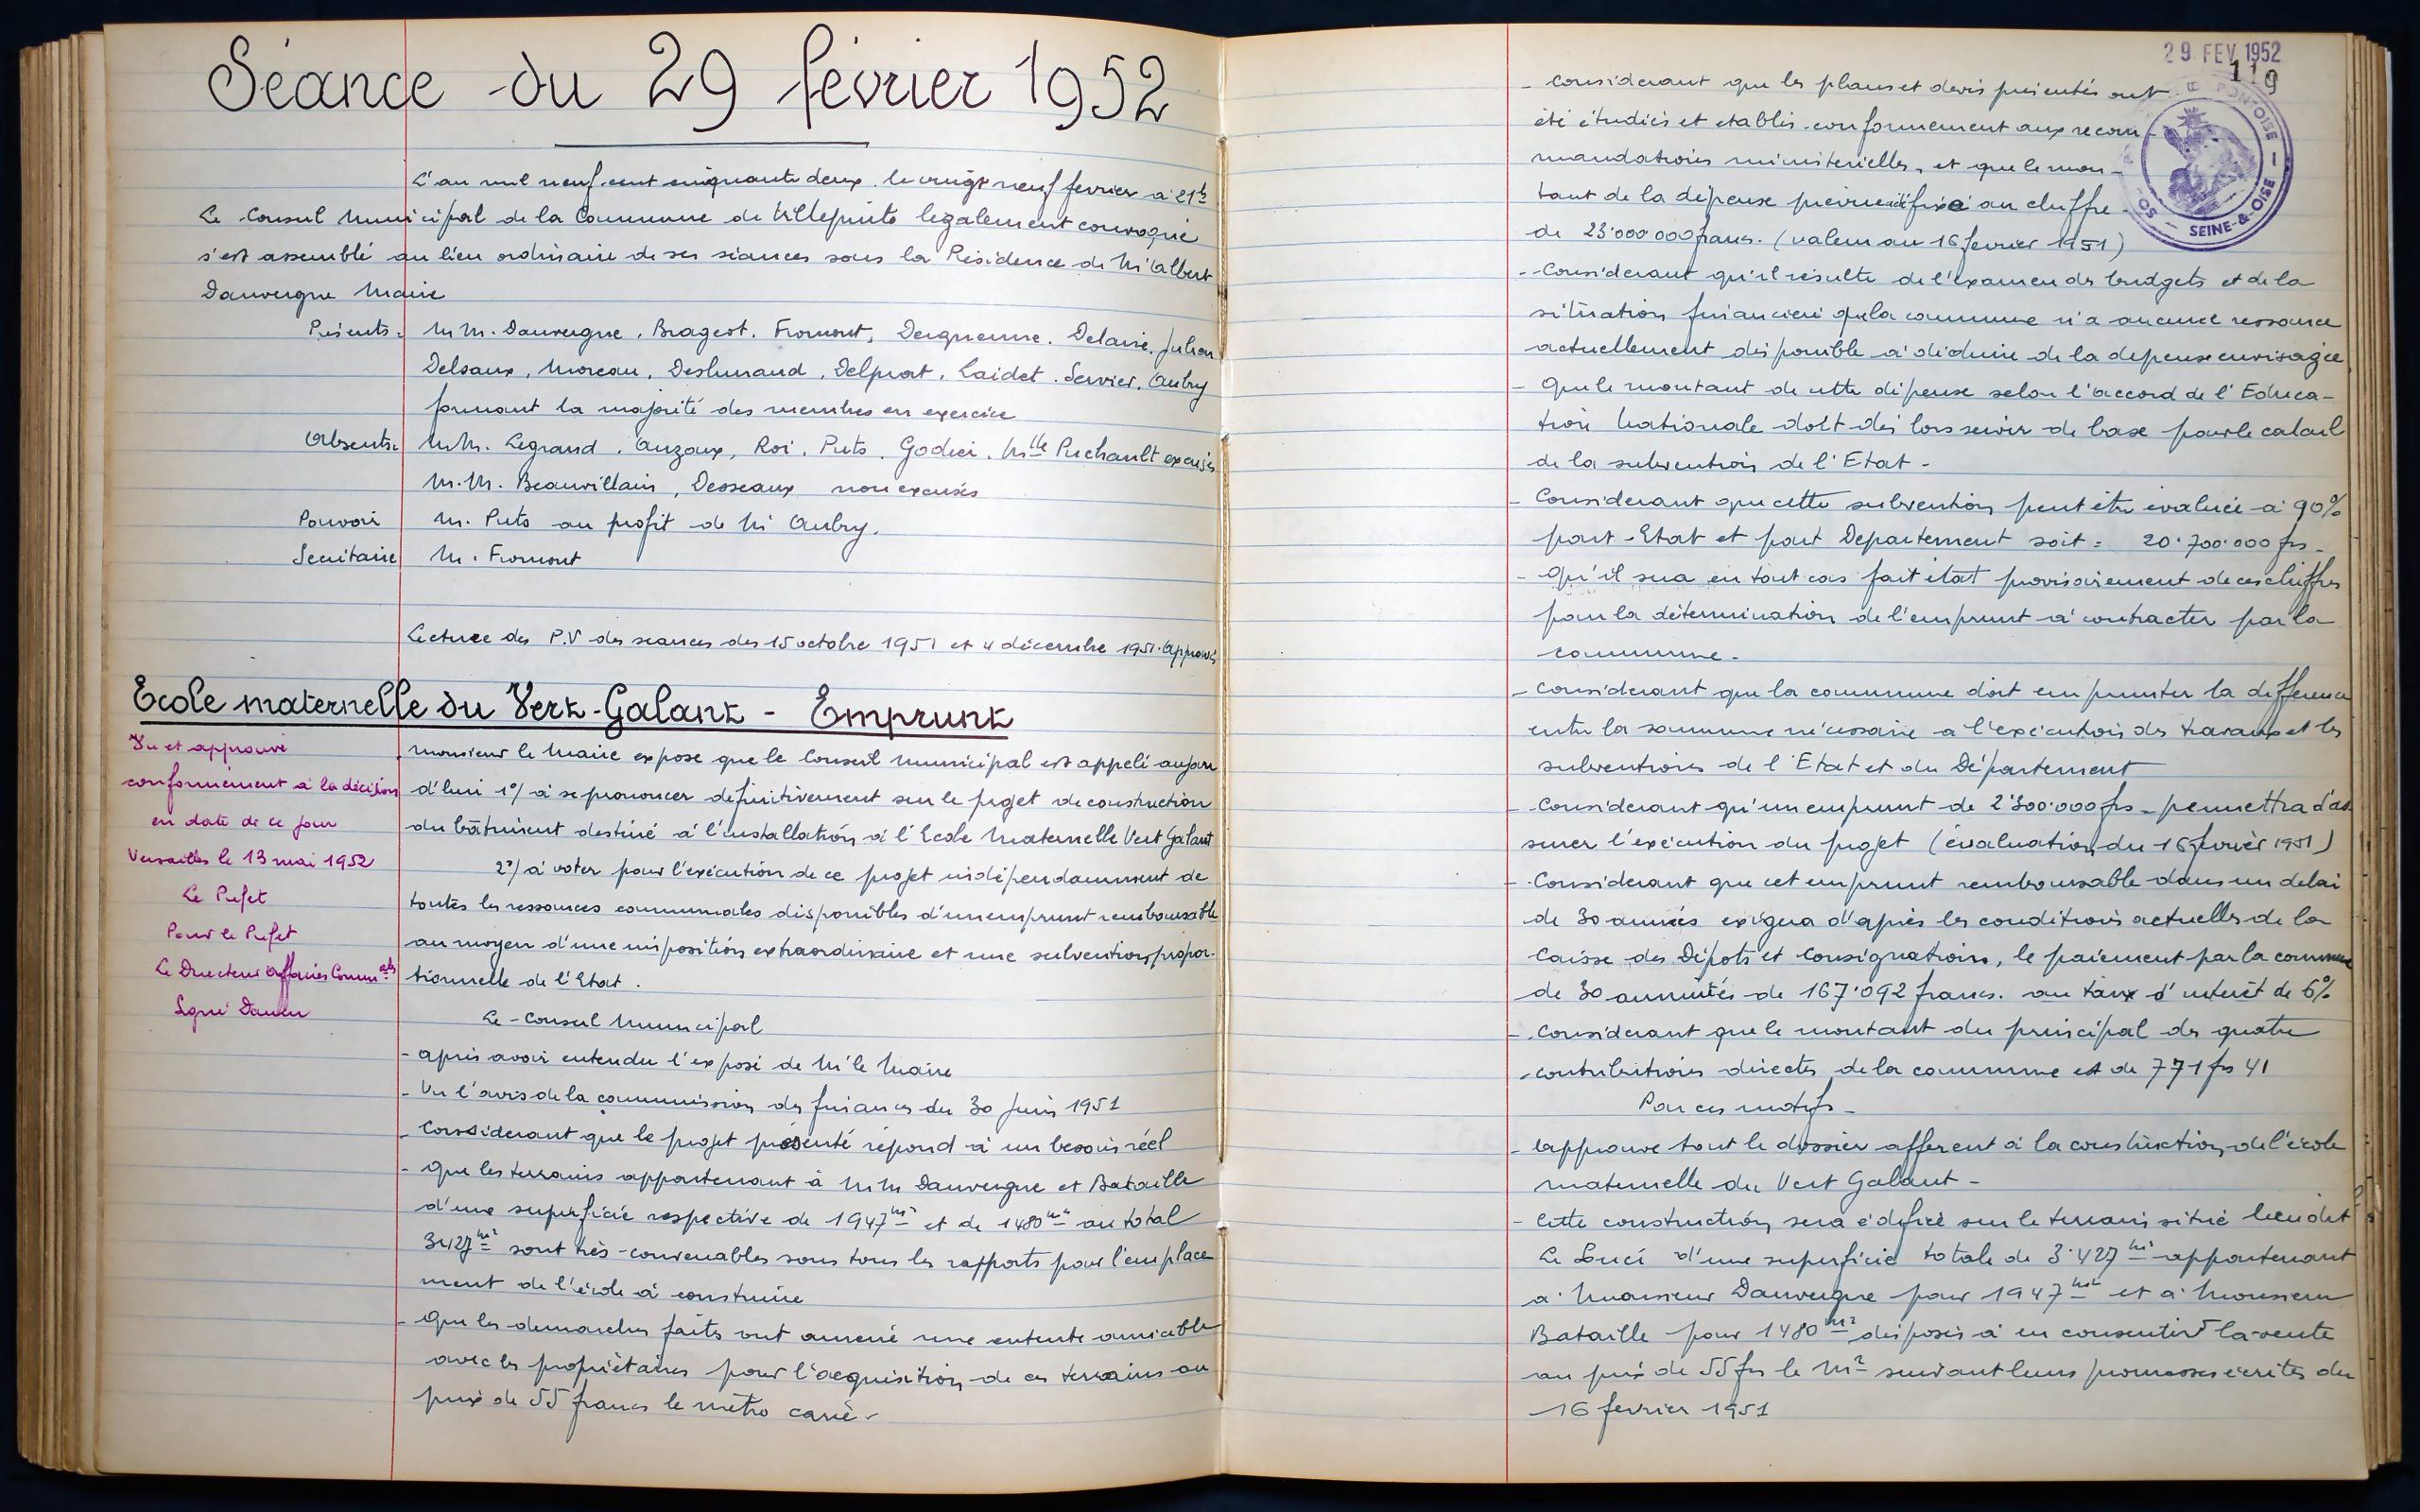 Séance du 29 février 1952
L'an mil neuf cent cinquante deux. le vingt neuf fevrier à 21h
Le Conseil Municipal de la Commune de Villepinte legalement convoqué
s'est assemblé au lieu ordinaire de ses séances sous la Présidence de M. Albert
Dauvergne Maire
Présents: MM. Dauvergne, Brageot, Fromont, Derquenne, Delaire, Julien
Delsaux, Moreau, Deshunaud, Delprat, Laidet, Servier, Aubry
formant la majorité des membres en exercice
Absents: MM. Legrand, Auzoux, Roi, Puts, Godiei, Mlle Puchault excusés
M.M. Beauvillain, Desseaux non excusés
Pouvoir M. Puts au profit de M. Aubry.
Secrétaire M. Fromont
Lecture des P.V des seances des 15 octobre 1951 et 4 décembre 1951. Approuvés
Ecole maternelle du Vert-Galant - Emprunt
Vu et approuvé
conformément à la décision
en date de ce jour
Versailles le 13 mai 1952
Le Prefet
Pour le Prefet
Le Directeur affaires Commales
Signé
Monsieur le Maire expose que le Conseil Municipal est appelé aujour
d'hui 1°/ à se prononcer définitivement sur le projet de construction
du bâtiment destiné à l'installation à l'Ecole Maternelle Vert Galant
2°/ à voter pour l'exécution de ce projet indépendamment de
toutes les ressources communales disponibles d'un emprunt remboursable
au moyen d'une imposition extraordinaire et une subvention propor-
tionnelle de l'Etat.
Le Conseil Municipal
- après avoir entendu l'exposé de M. le Maire
- Vu l'avis de la commission des finances du 30 Juin 1951
- Considerant que le projet présenté répond à un besoin réel
- Que les terrains appartenant à MM Dauvergne et Bataille
d'une superficie respective de 1947 m² et de 1480 m² au total
3427 m² sont très-convenables sous tous les rapports pour l'emplace
ment de l'école à construire
- Que les demarches faites ont amené une entente amicable
avec les propriétaires pour l'acquisition de ces terrains au
prix de 55 francs le mètre carré-
29 FEV 1952
119
PONTOISE
SEINE-&-OISE
- considerant que les plans et devis présentés ont
été étudiés et etablis conformement aux recom-
mandations ministérielles, et que le mon-
tant de la dépense prévue fixé au chiffre
de 23.000.000 francs. (valeur au 16 fevrier 1951)
- Considerant qu'il résulte de l'examen des budgets et de la
situation financière que la commune n'a aucune ressource
actuellement disponible à déduire de la dépense envisagée
- Que le montant de cette dépense selon l'accord de l'Educa-
tion Nationale doit dès lors servir de base pour le calcul
de la subvention de l'Etat-
- Considerant que cette subvention peut être évaluée à 90%
part-Etat et part Departement soit: 20.700.000 frs-
- Qu'il sera en tout cas fait état provisoirement de ces chiffres
pour la détermination de l'emprunt à contracter par la
commune-
- Considerant que la commune doit emprunter la difference
entre la somme nécessaire à l'exécution des travaux et les
subventions de l'Etat et du Département
- Considerant qu'un emprunt de 2.300.000 frs- permettra d'as
surer l'exécution du projet (évaluation du 16 février 1951)
- Considerant que cet emprunt remboursable dans un delai
de 30 années exigera d'après les conditions actuelles de la
Caisse des Dépots et Consignations, le paiement par la commune
de 30 annuités de 167.092 francs. au taux d'intérêt de 6%
- Considerant que le montant du principal des quatre
contributions directes de la commune est de 771 frs 41
Par ces motifs-
- approuve tout le dossier afferent à la construction de l'école
maternelle du Vert Galant-
- Cette construction sera édifiée sur le terrain situé lieu dit
Le d'une superficie totale de 3.427 m² appartenant
à Monsieur Dauvergne pour 1947 m² et à Monsieur
Bataille pour 1480 m² disposés à en consentir la vente
au prix de 55 frs le M² suivant leurs promesses écrites du
16 fevrier 1951